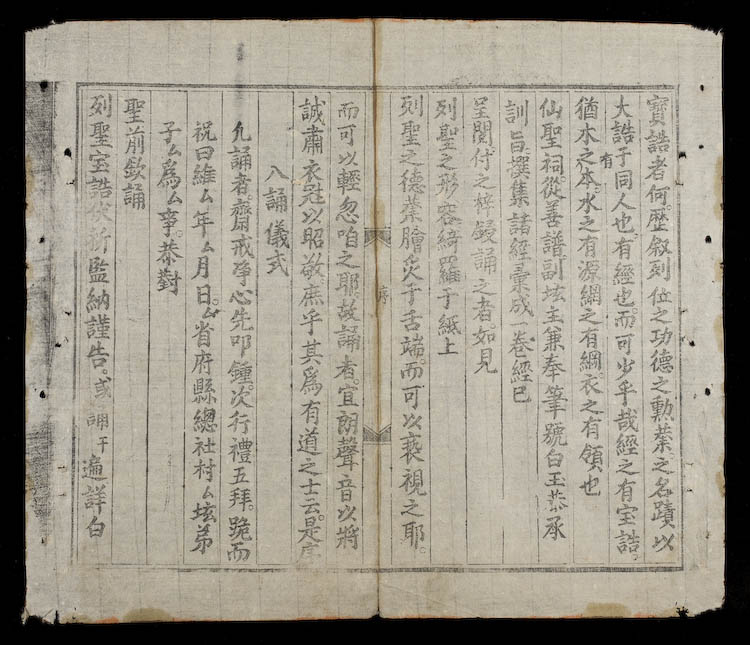 寶誥者何。歷叙列位之功德之勳業。之名蹟以
大誥于同人也。有經也。而可少乎哉經之有宝誥。
有
猶水之本。水之有源網之有綱。衣之有領也
仙聖祠。從善譜副坛主兼奉筆號白玉恭承
訓旨。撰集諸經彙成一卷經已
呈閱。付之梓鋟誦之者。如見
列聖之形容綺羅于紙上
列聖之德業膾炙于舌端。而可以褻視之耶。
序
而可以輕忽咱之耶。故誦者。宜朗聲音以將
誠肅衣冠以昭敬。庶乎其爲有道之士云。是序
入誦儀式
凡誦者齋戒净心先叩鍾。次行禮五拜。跪而
祝曰維厶年厶月日。厶省府縣總社村厶坛弟
子厶爲厶事。恭對
聖前欽誦
列聖宝誥伏祈監納謹告。或誦千遍詳白